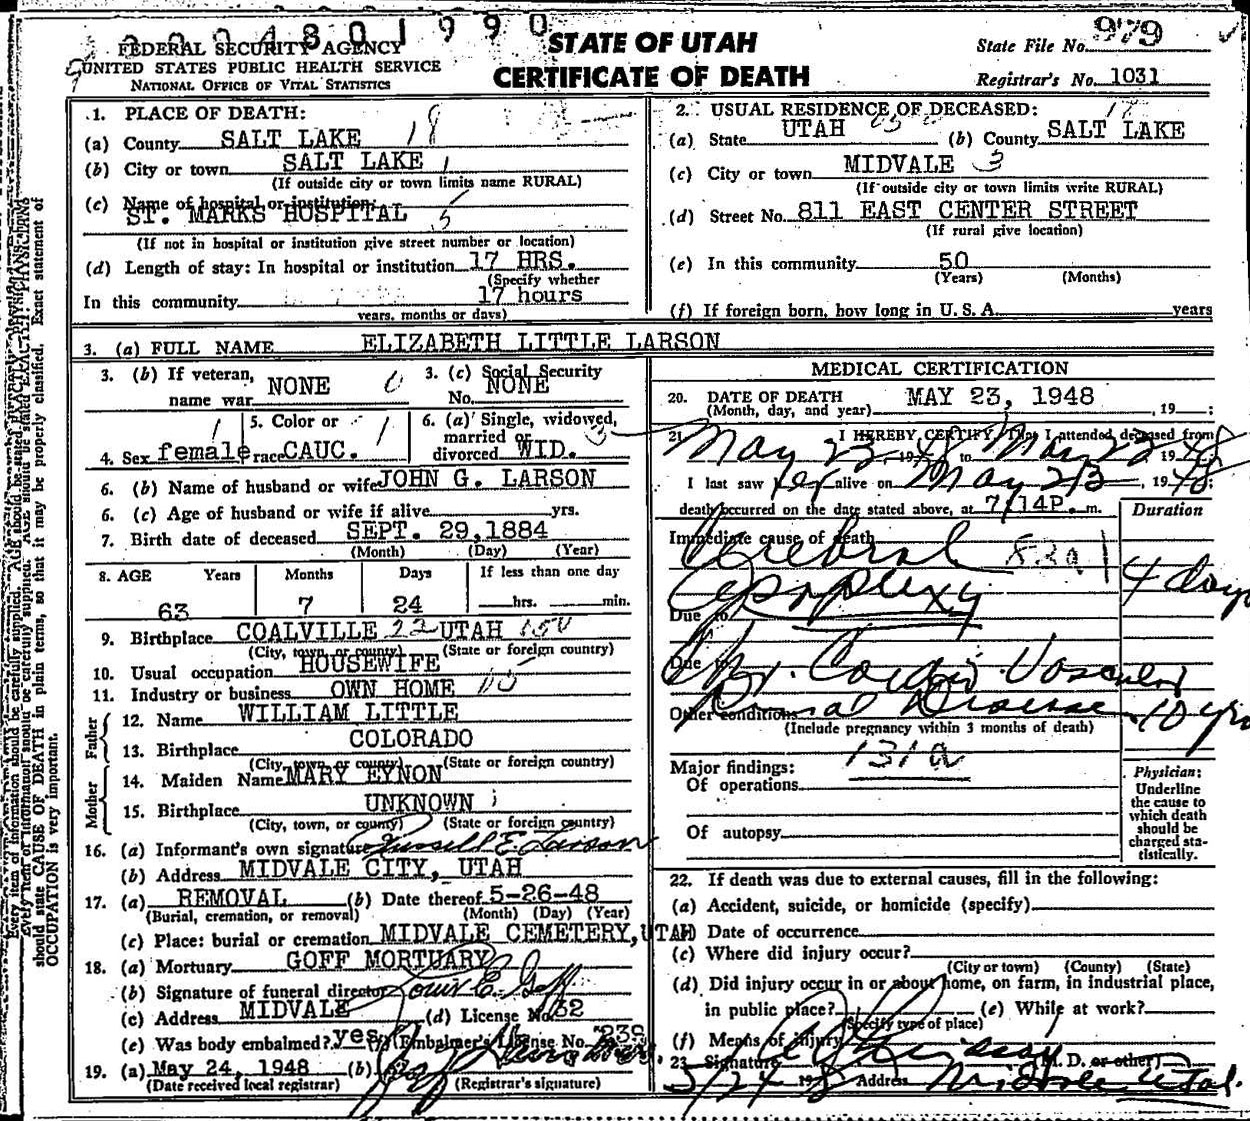 000480 1990
FEDERAL SECURITY AGENCY
UNITED STATES PUBLIC HEALTH SERVICE
NATIONAL OFFICE OF VITAL STATISTICS
STATE OF UTAH
CERTIFICATE OF DEATH
State File No. 979
Registrar's No. 1031
1. PLACE OF DEATH:
(a) County SALT LAKE 18
(b) City or town SALT LAKE 1
(If outside city or town limits name RURAL)
(c) Name of hospital or institution:
ST. MARKS HOSPITAL 5
(If not in hospital or institution give street number or location)
(d) Length of stay: In hospital or institution 17 HRS.
(Specify whether
In this community 17 hours
years, months or days)
2. USUAL RESIDENCE OF DECEASED: 18
(a) State UTAH (b) County SALT LAKE
(c) City or town MIDVALE 3
(If outside city or town limits write RURAL)
(d) Street No. 811 EAST CENTER STREET
(If rural give location)
(e) In this community 50
(Years) (Months)
(f) If foreign born, how long in U. S. A. years
3. (a) FULL NAME ELIZABETH LITTLE LARSON
3. (b) If veteran, name war NONE 0
3. (c) Social Security No. NONE
4. Sex female 1
5. Color or race CAUC. 1
6. (a) Single, widowed, married or divorced WID. 3
6. (b) Name of husband or wife JOHN G. LARSON
6. (c) Age of husband or wife if alive yrs.
7. Birth date of deceased SEPT. 29,1884
(Month) (Day) (Year)
8. AGE Years Months Days If less than one day
63 7 24 hrs. min.
9. Birthplace COALVILLE 22 UTAH
(City, town, or county) (State or foreign country)
10. Usual occupation HOUSEWIFE
11. Industry or business OWN HOME
Father
12. Name WILLIAM LITTLE
13. Birthplace COLORADO
(City, town, or county) (State or foreign country)
Mother
14. Maiden Name MARY EYNON
15. Birthplace UNKNOWN
(City, town, or county) (State or foreign country)
16. (a) Informant's own signature Russell E. Larson
(b) Address MIDVALE CITY, UTAH
17. (a) REMOVAL (b) Date thereof 5-26-48
(Burial, cremation, or removal) (Month) (Day) (Year)
(c) Place: burial or cremation MIDVALE CEMETERY, UTAH
18. (a) Mortuary GOFF MORTUARY
(b) Signature of funeral director Louis E. Goff
(c) Address MIDVALE (d) License No. 132
(e) Was body embalmed? yes (f) Embalmer's License No. 239
19. (a) May 24, 1948 (b)
(Date received local registrar) (Registrar's signature)
MEDICAL CERTIFICATION
20. DATE OF DEATH MAY 23, 1948 , 19 ;
(Month, day, and year)
21. I HEREBY CERTIFY, That I attended deceased from
May 23, 1948 to May 23 1948
I last saw her alive on May 23, 1948;
death occurred on the date stated above, at 7:14P. m.
Duration
Immediate cause of death
Cerebral 83a
Apoplexy 4 days
Due to
Due to
Chr. Cardio Vascular
Renal Disease 10 yrs
Other conditions
(Include pregnancy within 3 months of death)
131a
Major findings:
Of operations
Of autopsy
Physician:
Underline
the cause to
which death
should be
charged sta-
tistically.
22. If death was due to external causes, fill in the following:
(a) Accident, suicide, or homicide (specify)
Date of occurrence
(c) Where did injury occur?
(City or town) (County) (State)
(d) Did injury occur in or about home, on farm, in industrial place,
in public place? (e) While at work?
(Specify type of place)
(f) Means of injury
23. Signature (M. D. or other)
5/24 1948 Address Midvale Utah.
should state CAUSE OF DEATH in plain terms, so that it may be properly classified. Exact statement of
OCCUPATION is very important.